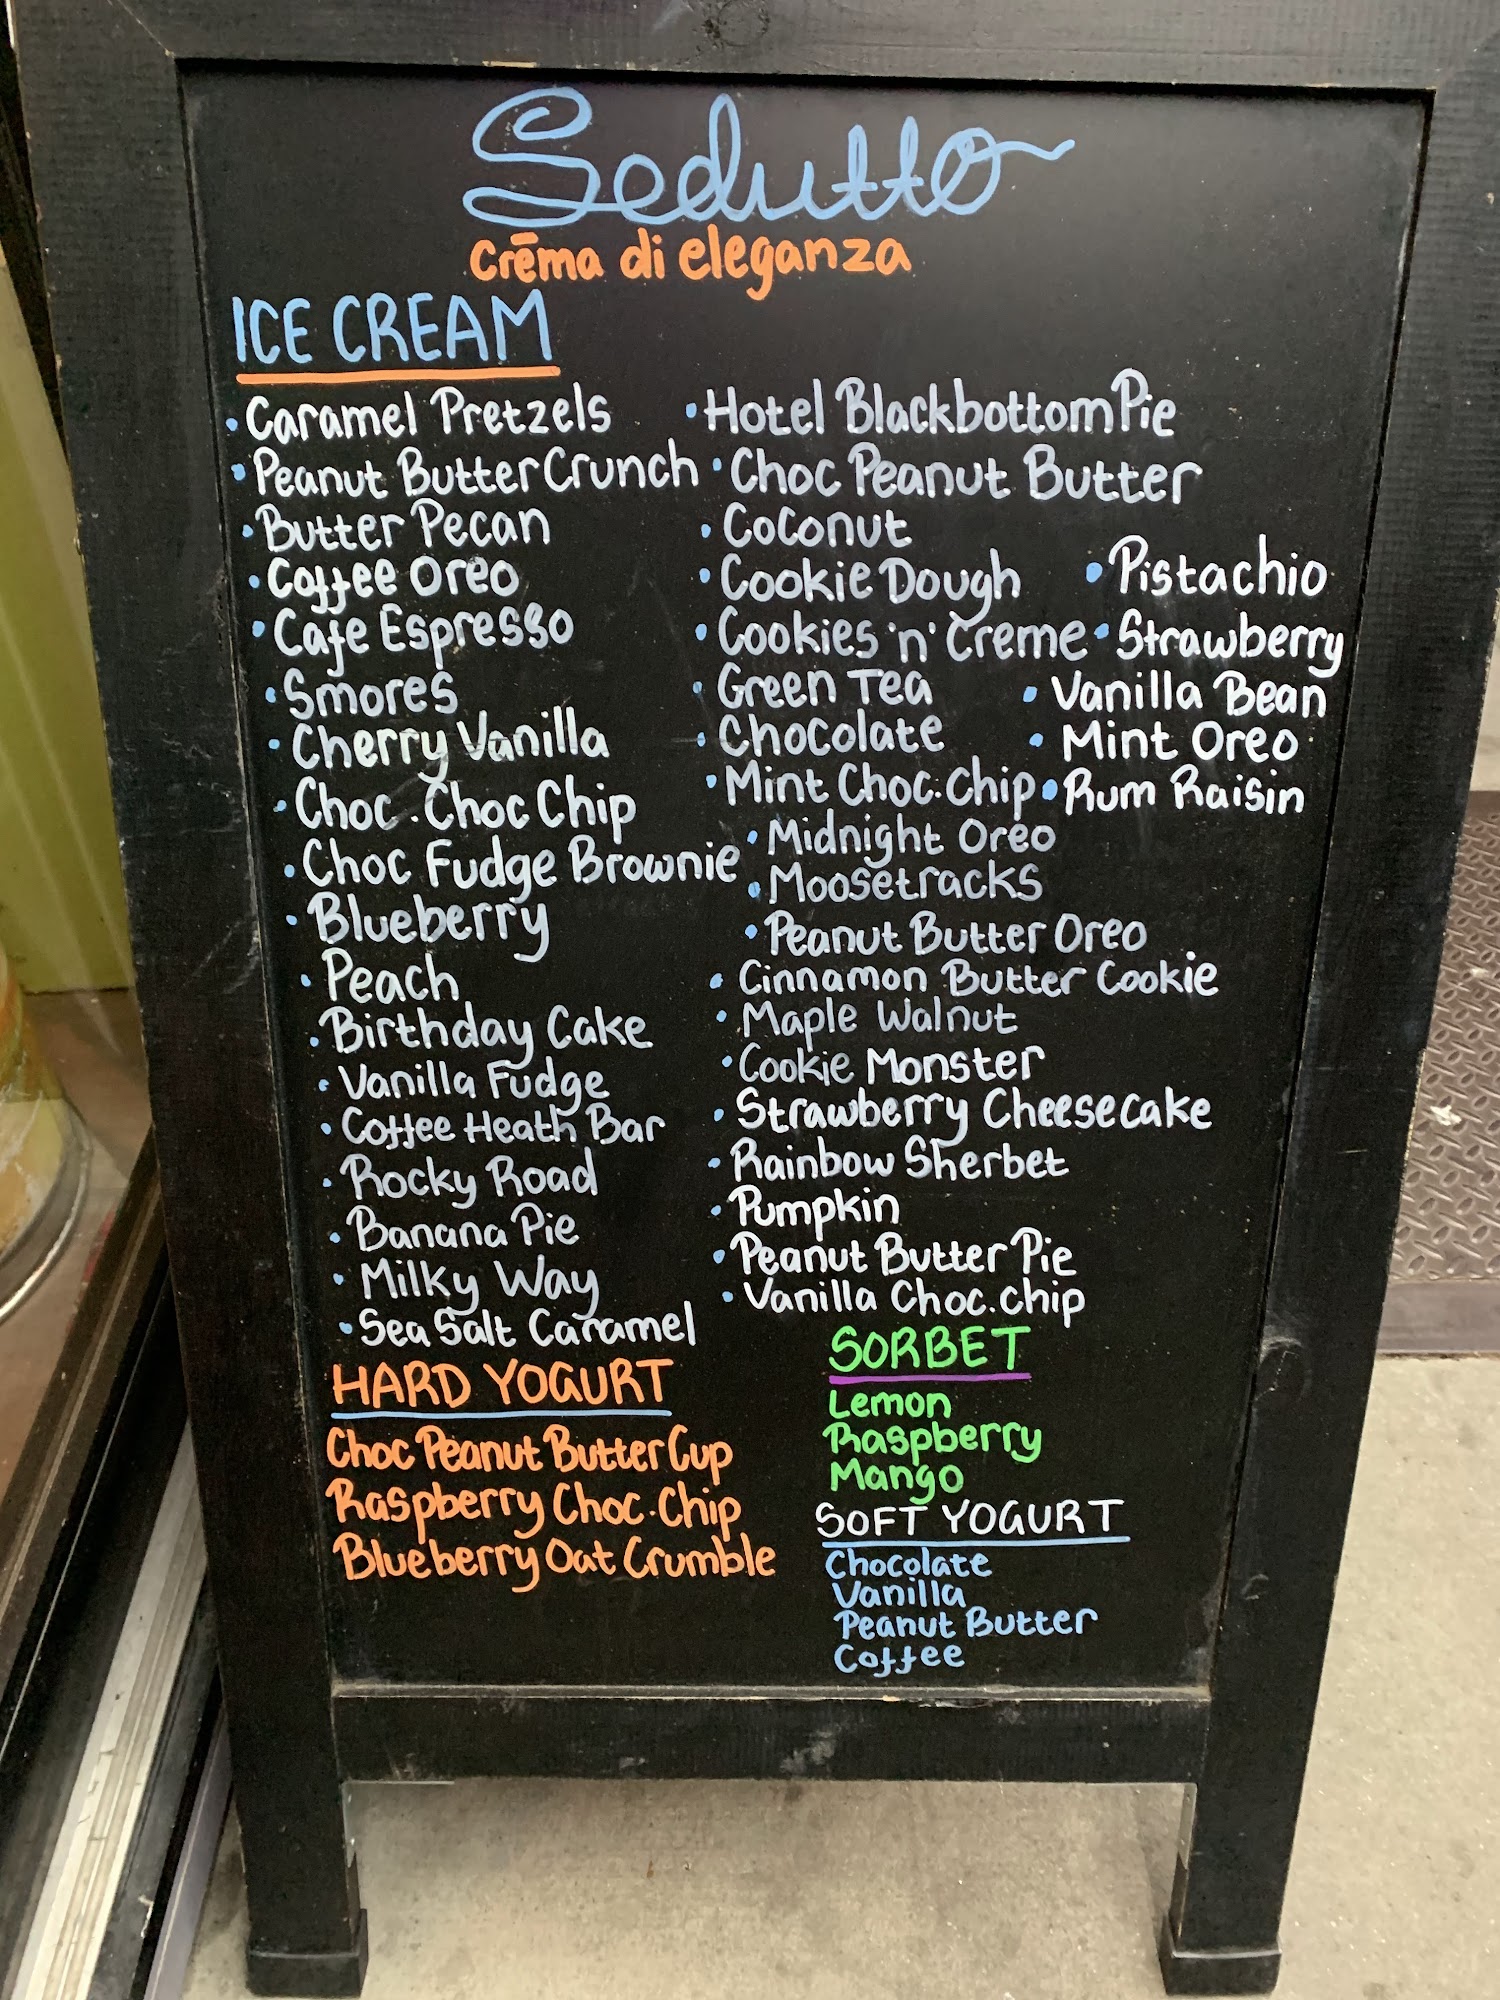 Sedutto
Crēma di eleganza
ICE CREAM
• Caramel Pretzels
• Peanut Butter Crunch
• Butter Pecan
• Coffee Oreo
• Cafe Espresso
• Smores
• Cherry Vanilla
• Choc. Choc Chip
• Choc Fudge Brownie
• Blueberry
• Peach
• Birthday Cake
• Vanilla Fudge
• Coffee Heath Bar
• Rocky Road
• Banana Pie
• Milky Way
• Sea Salt Caramel
• Hotel Blackbottom Pie
• Choc Peanut Butter
• Coconut
• Cookie Dough
• Cookies 'n' Creme
• Green Tea
• Chocolate
• Mint Choc. Chip
• Midnight Oreo
• Moosetracks
• Peanut Butter Oreo
• Cinnamon Butter Cookie
• Maple Walnut
• Cookie Monster
• Strawberry Cheesecake
• Rainbow Sherbet
• Pumpkin
• Peanut Butter Pie
• Vanilla Choc. chip
• Pistachio
• Strawberry
• Vanilla Bean
• Mint Oreo
• Rum Raisin
HARD YOGURT
Choc Peanut Butter Cup
Raspberry Choc. Chip
Blueberry Oat Crumble
SORBET
Lemon
Raspberry
Mango
SOFT YOGURT
Chocolate
Vanilla
Peanut Butter
Coffee